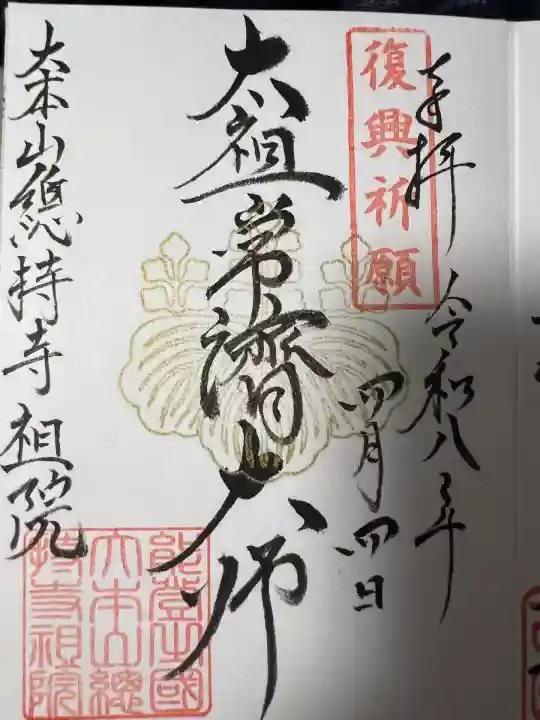 奉拝 令和八年
四月四日
復興祈願
太祖常濟大师
大本山總持寺祖院
能登國
大本山總
持寺祖院